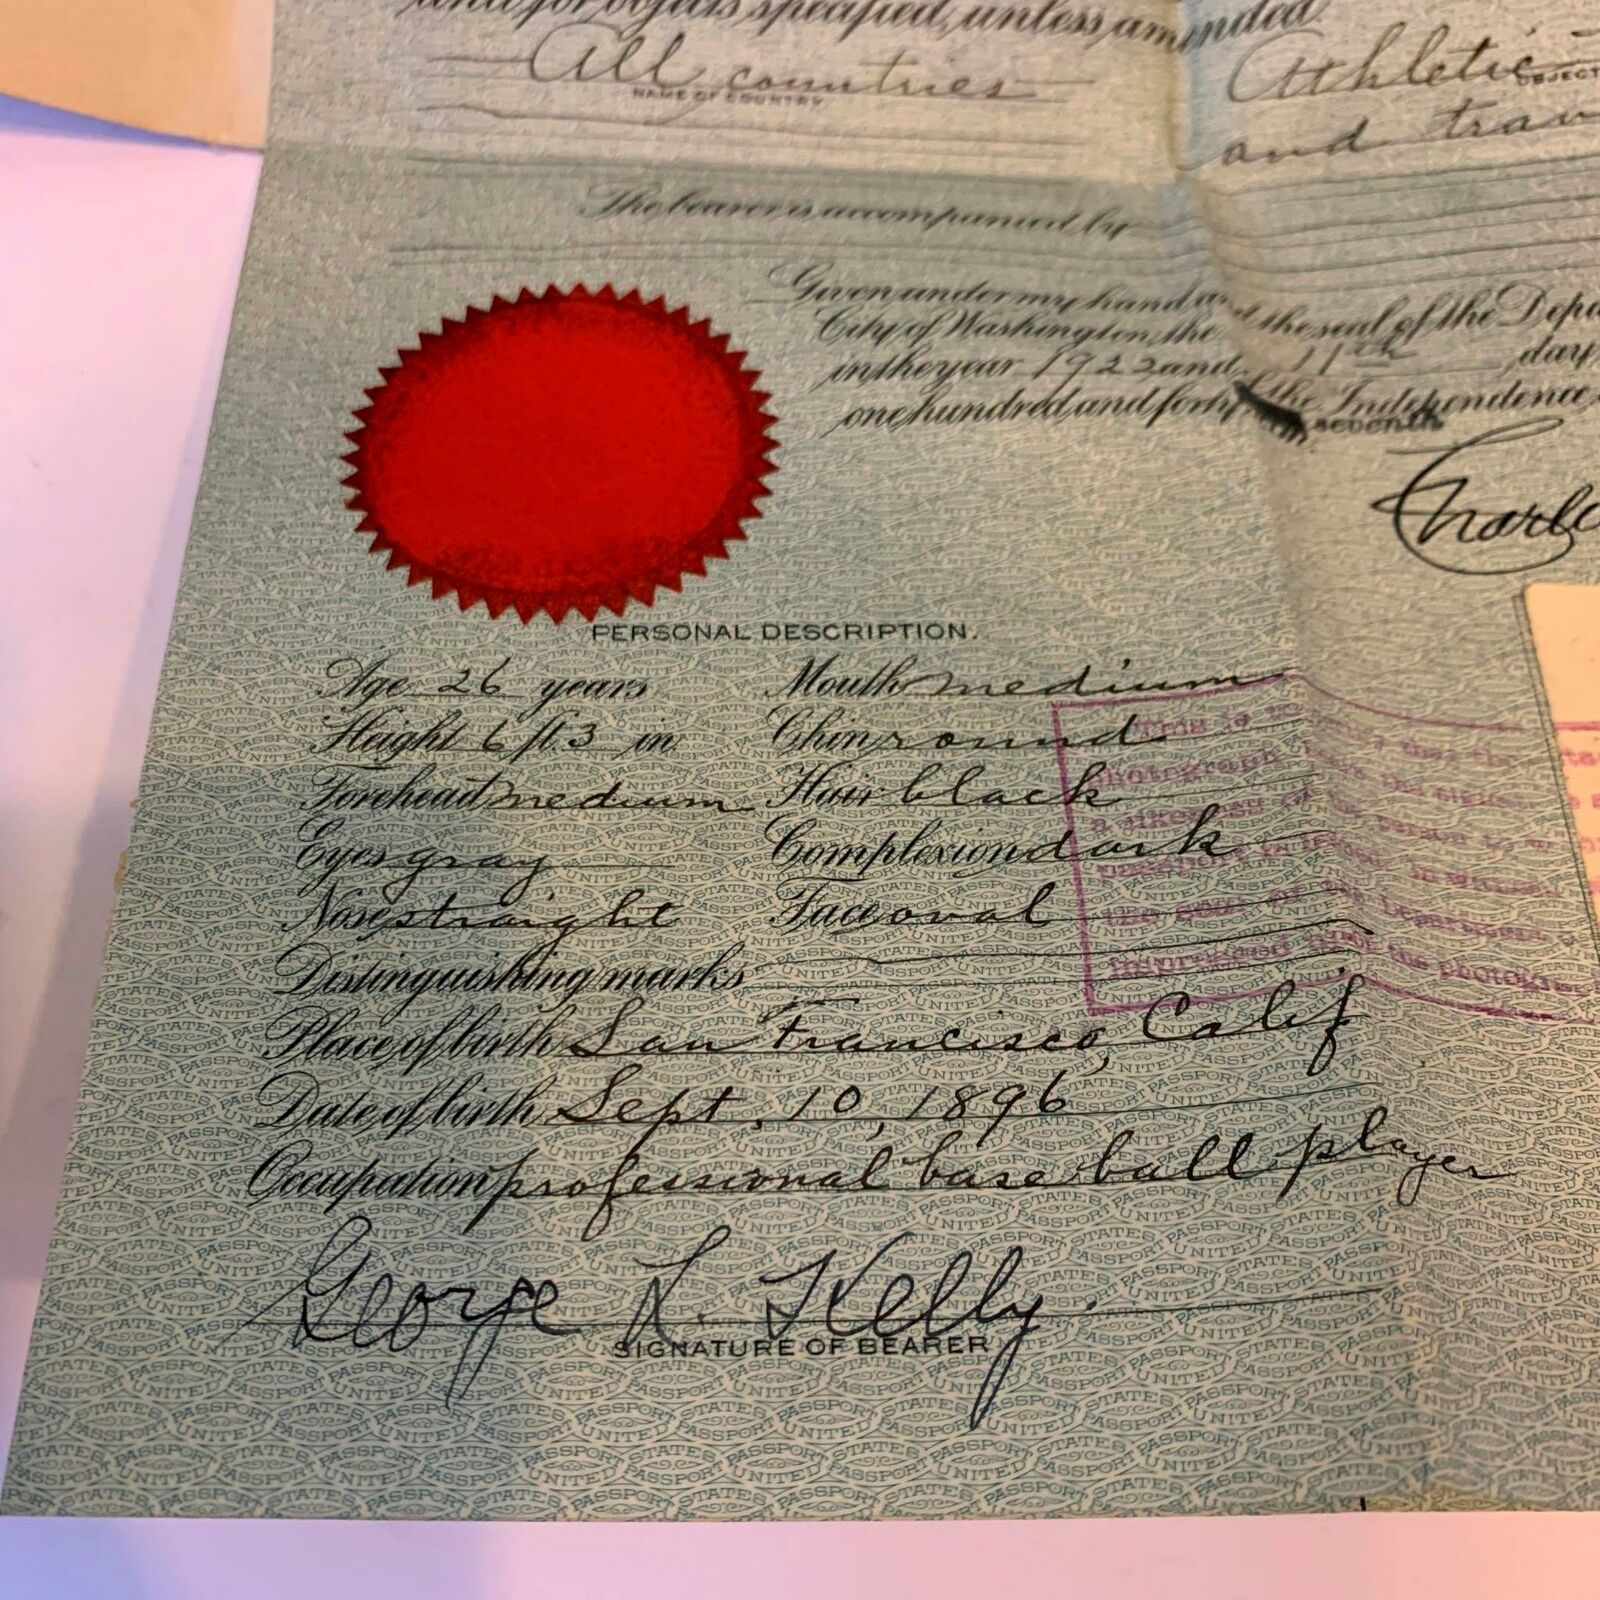 and for objects specified, unless amended.
All countries
NAME OF COUNTRY.
Athletic
OBJECT
and trav
The bearer is accompanied by
Given under my hand and the seal of the Depa
City of Washington, the 11th day
in the year 1922 and
one hundred and forty seventh of the Independence
Charle
PERSONAL DESCRIPTION.
Age 26 years Mouth medium
Height 6 ft. 3 in. Chin round
Forehead medium Hair black
Eyes gray Complexion dark
Nose straight Face oval
Distinguishing marks
Place of birth San Francisco, Calif
Date of birth Sept. 10, 1896
Occupation professional base ball player
George L. Kelly.
SIGNATURE OF BEARER
This is to that the
photograph
a likeness of the person to
the seal of the Department
impressed upon the photogra